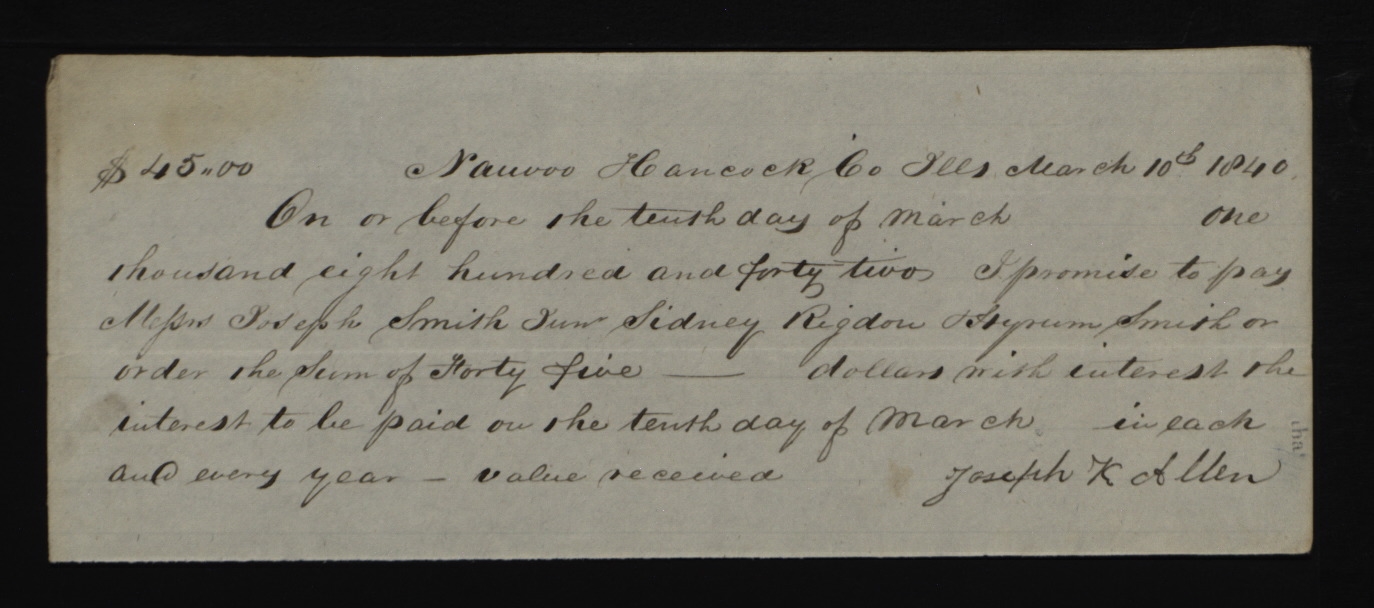 $45.,00 Nauvoo Hancock Co Ills March 10th 1840.
On or before the tenth day of March one
thousand eight hundred and forty two I promise to pay
Messrs Joseph Smith Junr Sidney Rigdon & Hyrum Smith or
order the Sum of Forty five — dollars with interest the
interest to be paid on the tenth day of March in each
and every year – value received Joseph K Allen